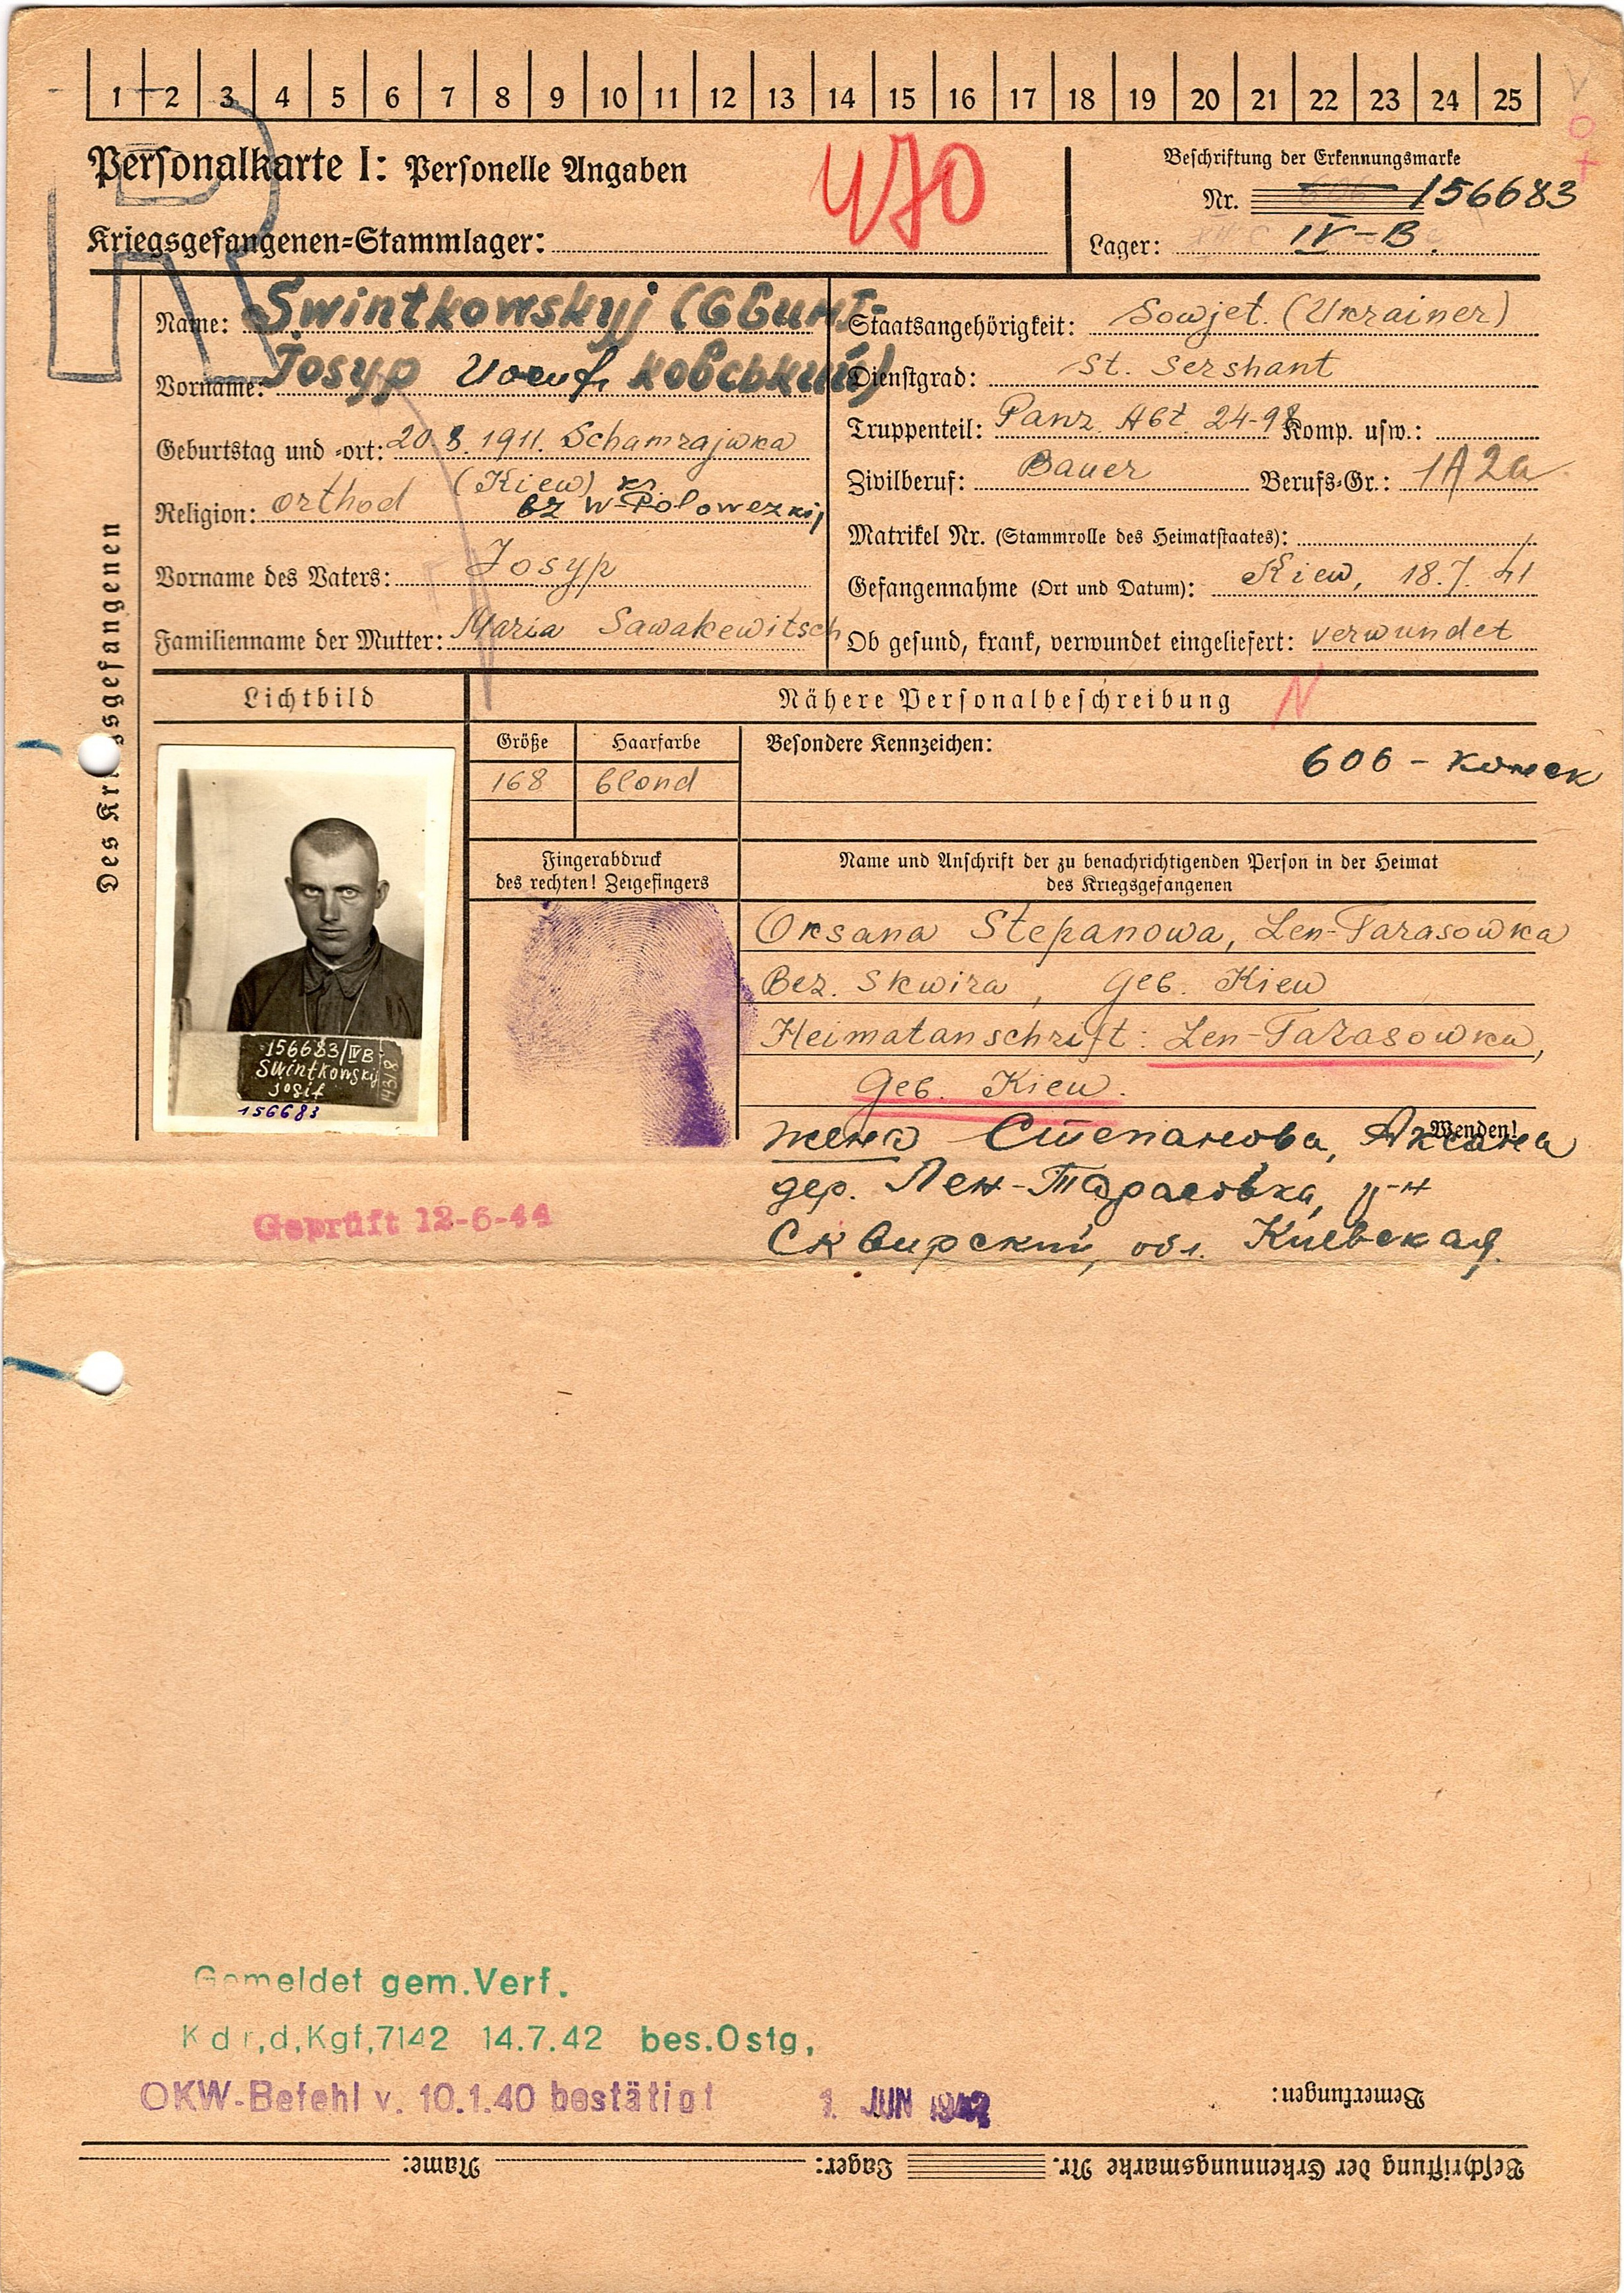 1 2 3 4 5 6 7 8 9 10 11 12 13 14 15 16 17 18 19 20 21 22 23 24 25
Personalkarte I: Personelle Angaben
470
Beschriftung der Erkennungsmarke
Nr. 156683
Kriegsgefangenen-Stammlager:
Lager: IV-B.
Des Kriegsgefangenen
Name: Swintkowskyj (Свинт-
Vorname: Josyp Иосиф ковський)
Geburtstag und -ort: 20.8.1911. Schamrajwka
(Kiew)
Religion: orthod bz W-Polowezkij
Vorname des Vaters: Josyp
Familienname der Mutter: Maria Sawakewitsch
Staatsangehörigkeit: Sowjet. (Ukrainer)
Dienstgrad: St. Sershant
Truppenteil: Panz. Abt. 24-98 Komp. usw.:
Zivilberuf: Bauer Berufs-Gr.: 1A2a
Matrikel Nr. (Stammrolle des Heimatstaates):
Gefangennahme (Ort und Datum): Kiew, 18.7.41
Ob gesund, krank, verwundet eingeliefert: verwundet
Lichtbild
Nähere Personalbeschreibung
N
Größe Haarfarbe
168 blond
Besondere Kennzeichen:
606 -
Fingerabdruck
des rechten! Zeigefingers
Name und Anschrift der zu benachrichtigenden Person in der Heimat
des Kriegsgefangenen
Oksana Stepanowa, Len-Tarasowka
Bez. Skwira, Geb. Kiew
Heimatanschrift: Len-Tarasowka,
Geb. Kiew.
Wenden!
жена Степанова, Аксана
дер. Лен-Тарасовка, р-н
Сквирский, обл. Киевская.
156683/IVB
Swintkowskij
Josif
1438
156683
Geprüft 12-6-44
Gemeldet gem.Verf.
Kdr,d,Kgf,7142 14.7.42 bes.Ostg,
OKW-Befehl v. 10.1.40 bestätigt 1. JUN 1942
Bemerkungen:
Beschriftung der Erkennungsmarke Nr. Lager: Name: